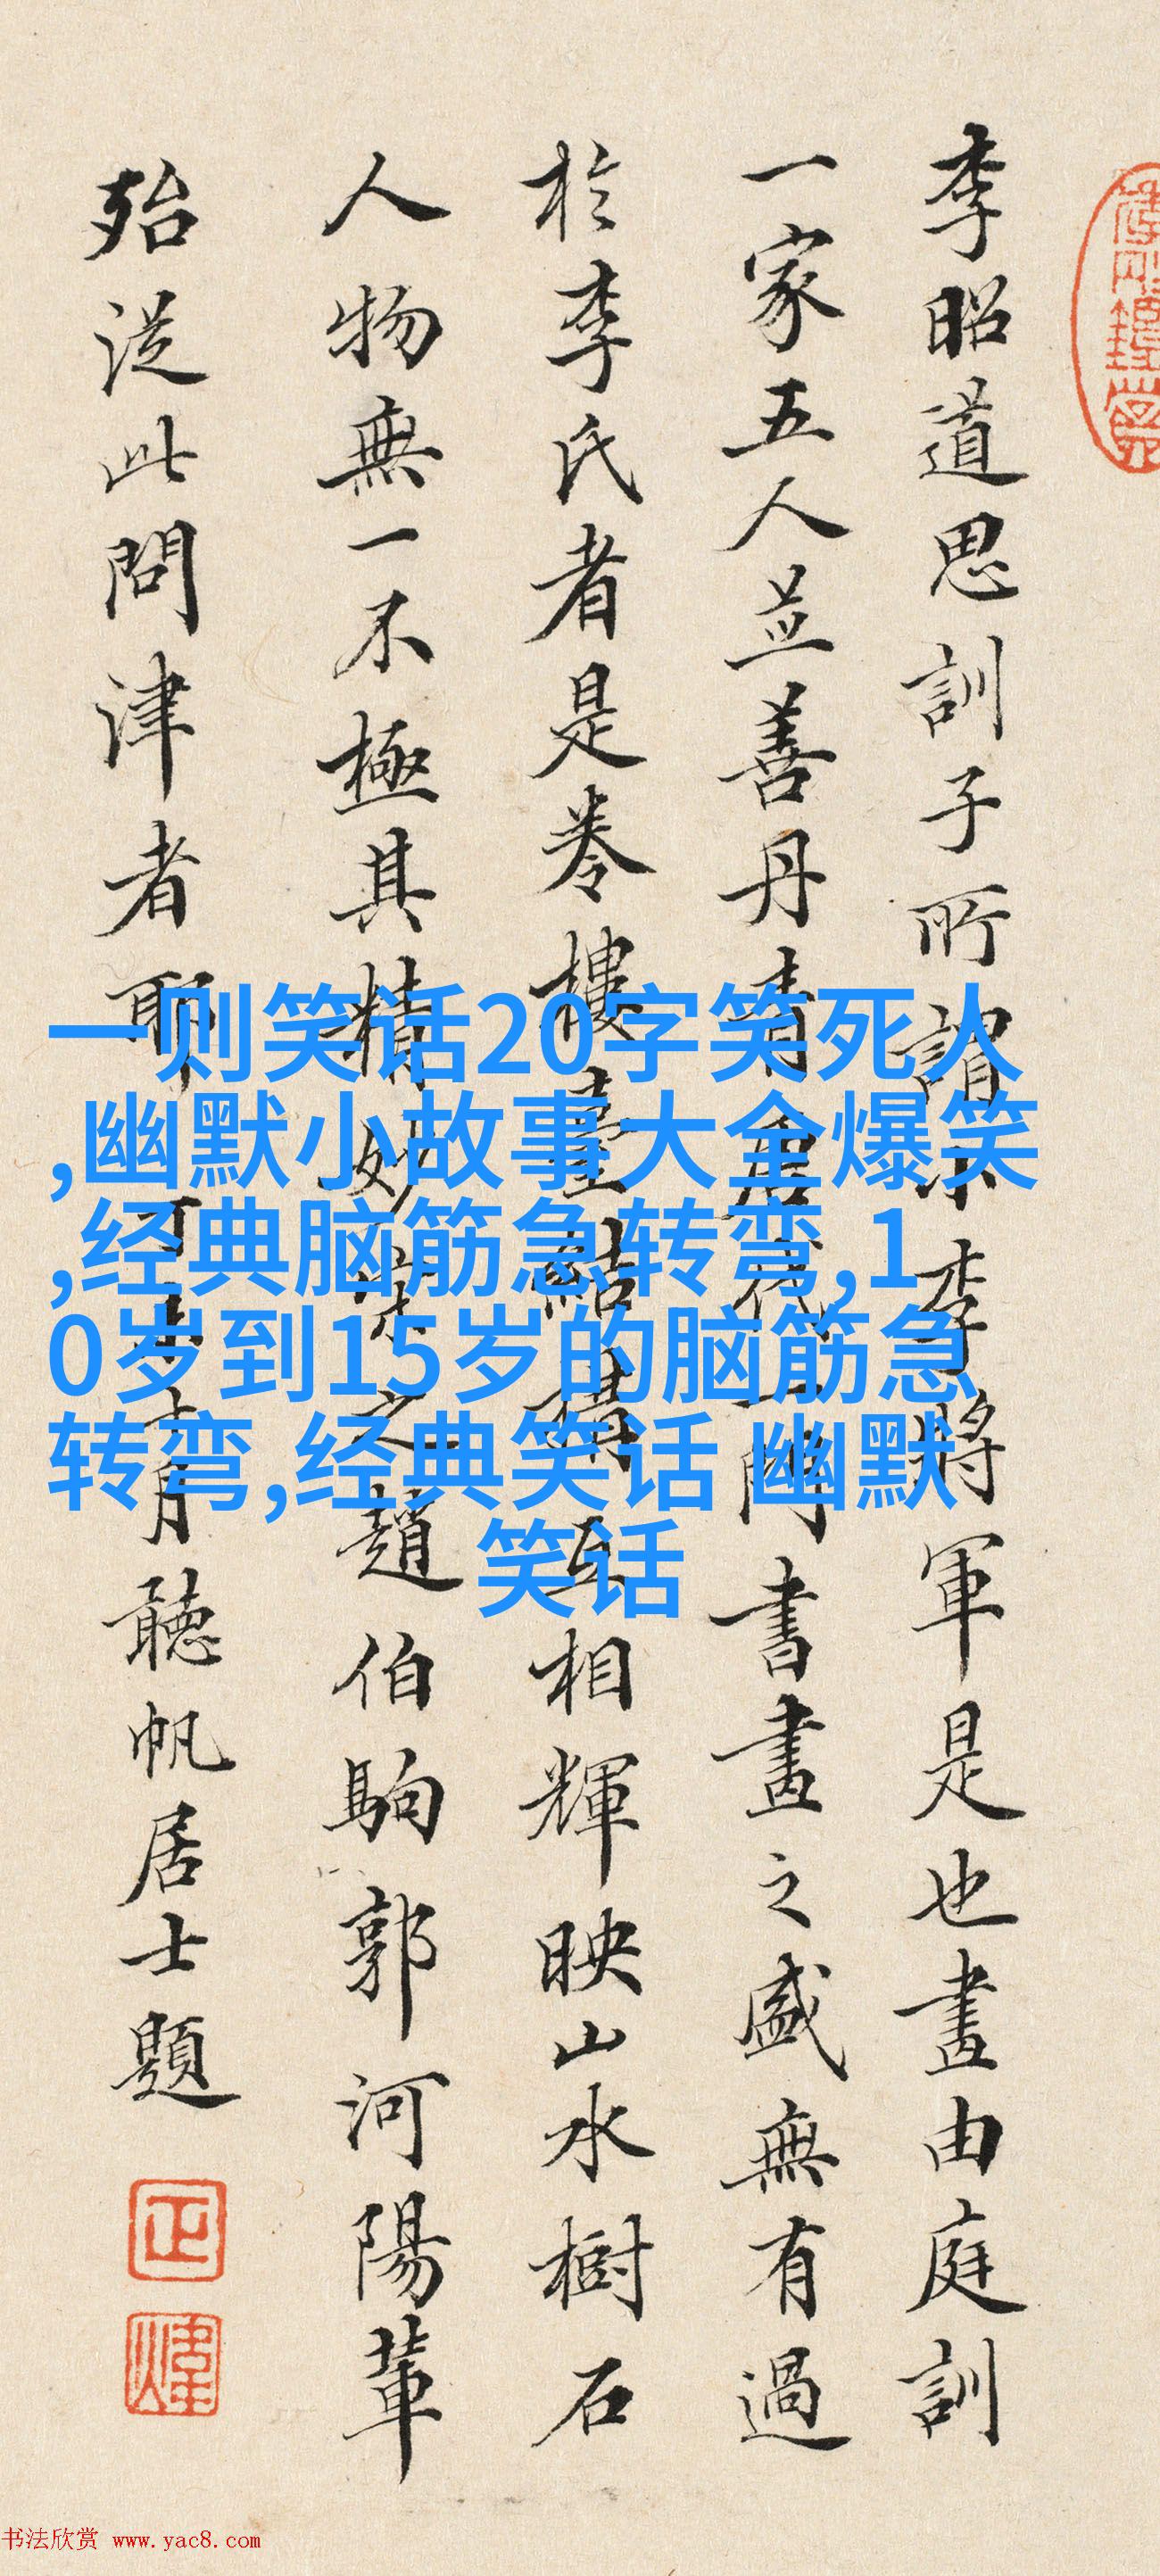 李昭道思訓子所謂小李將軍是也畫由庭訓
一家五人並善丹青唐代一門書畫之盛無有過
於李氏者是卷樓臺結構互相輝映山水樹石
人物無一不極其精妙宋之趙伯駒郭河陽輩
殆從此問津者耶
聽帆居士題
一则笑话20字笑死人
,幽默小故事大全爆笑
,经典脑筋急转弯,1
0岁到15岁的脑筋急
转弯,经典笑话 幽默
笑话
书法欣赏 www.yac8.com